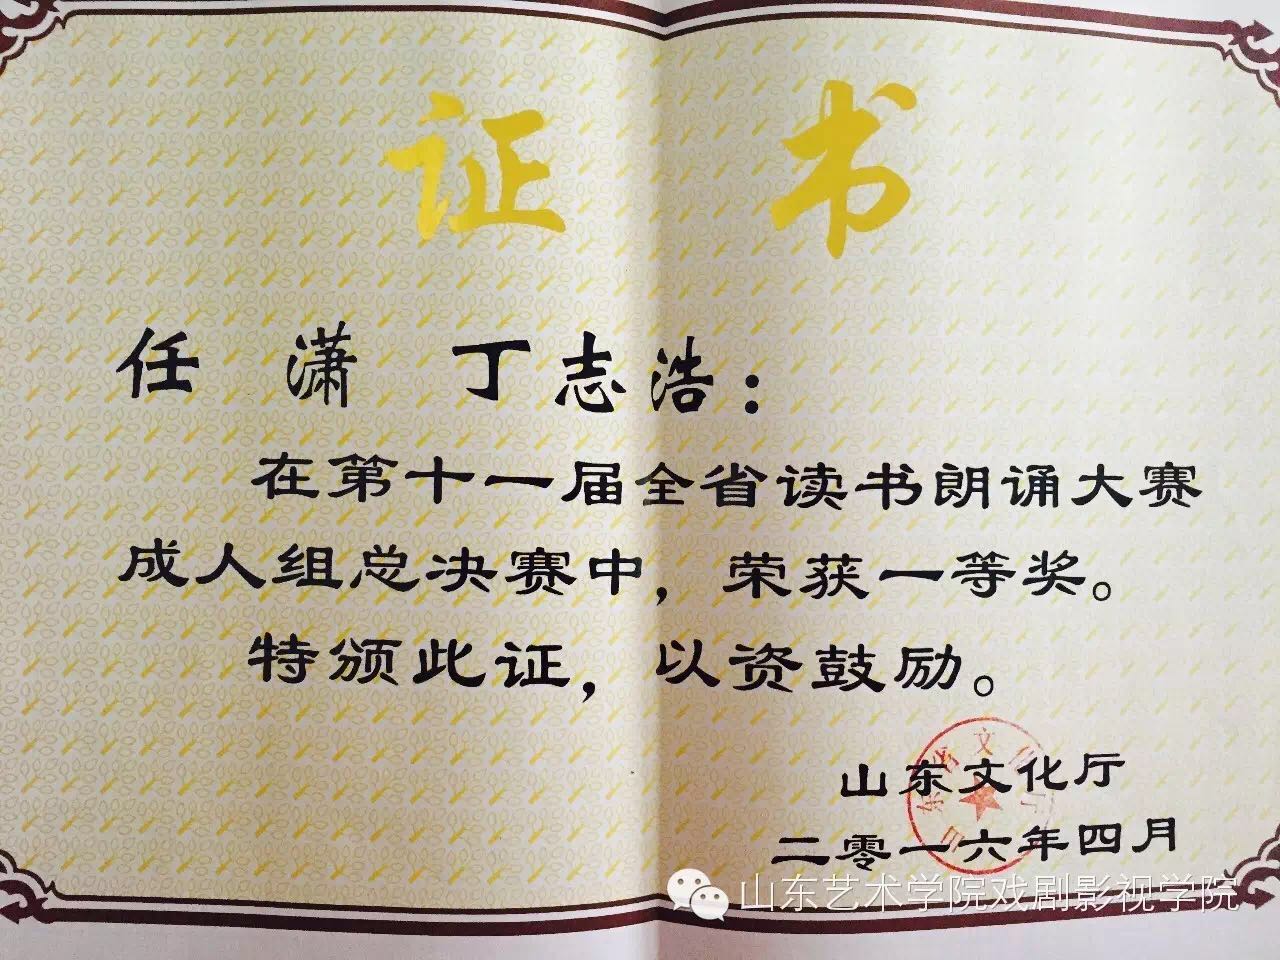 证 书
任 潇 丁志浩：
在第十一届全省读书朗诵大赛
成人组总决赛中，荣获一等奖。
特颁此证，以资鼓励。
山东文化厅
二零一六年四月
山东艺术学院戏剧影视学院